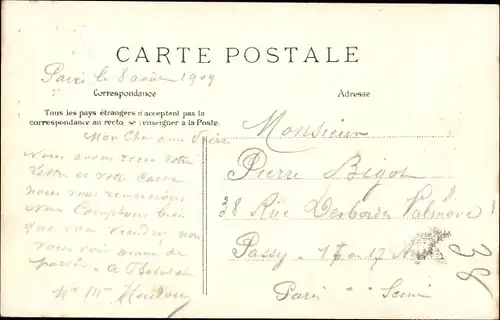 CARTE POSTALE
Paris le 8 août 1909
Correspondance
Adresse
Tous les pays étrangers n'acceptent pas la
correspondance au recto, se renseigner à la Poste.
Mon Cher ami Pierre
Nous avons reçu votre
lettre et votre carte
nous vous remercions
Nous Comptons bien
que vous viendrez nous
vous voir avant de
partir A Bientôt
Mr Mme
Monsieur
Pierre Bigot
38 Rue Desbordes Valmore
Passy
Paris Seine
38